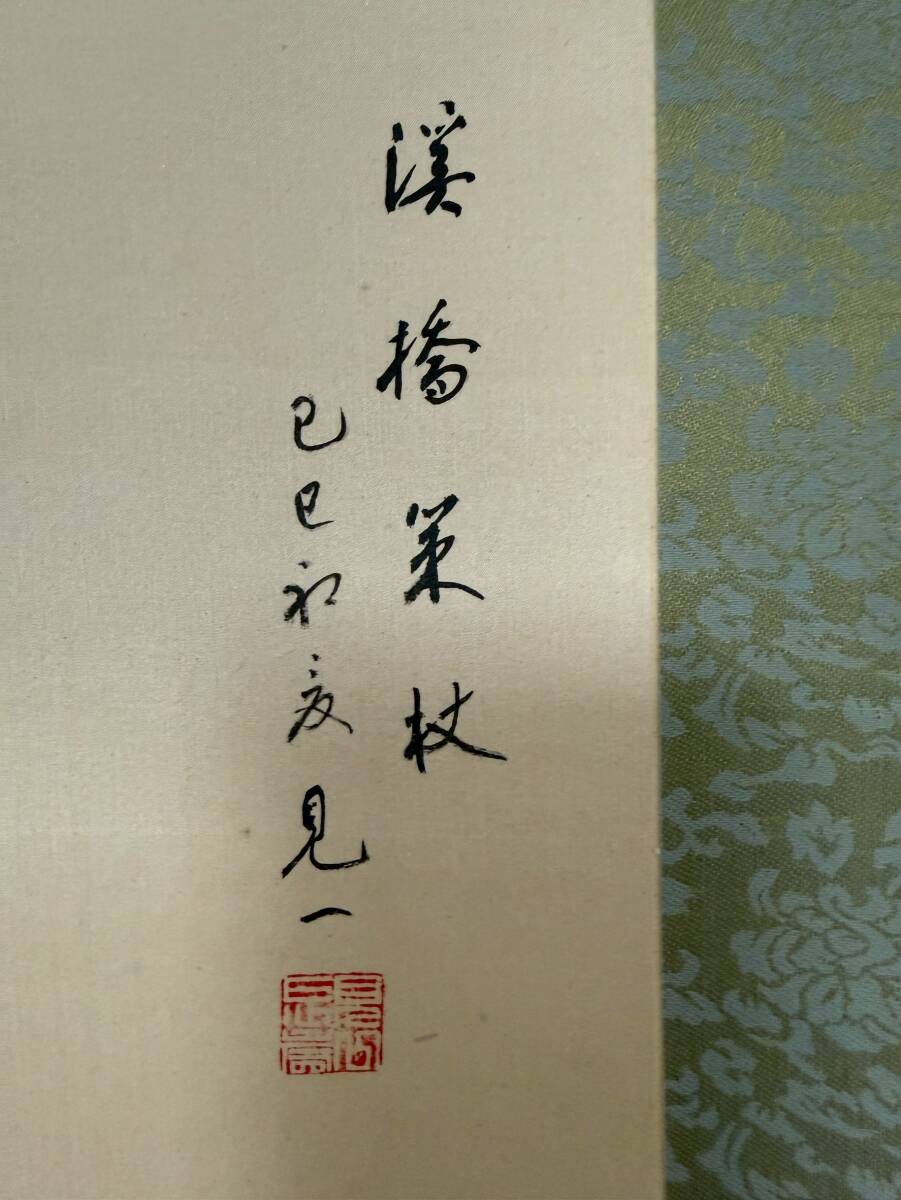 溪橋策杖
己巳初夏見一